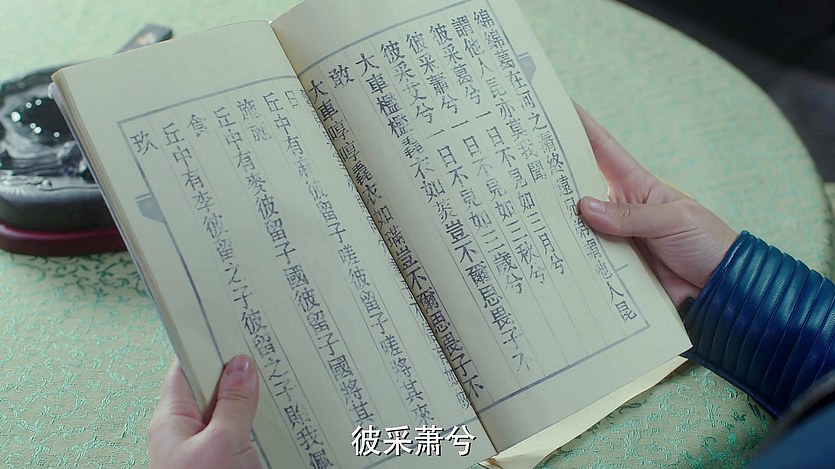 綿綿葛在河之漘終遠兄弟謂他人昆
謂他人昆亦莫我聞
彼采葛兮一日不見如三月兮
彼采蕭兮一日不見如三秋兮
彼采艾兮一日不見如三歲兮
大車檻檻毳衣如菼豈不爾思畏子不
敢
大車啍啍毳衣如璊豈不爾思畏子不
日
丘中有麻彼留子嗟彼留子嗟將其來
施施
丘中有麥彼留子國彼留子國將其
食
丘中有李彼留之子彼留之子貽我佩
玖
彼采萧兮